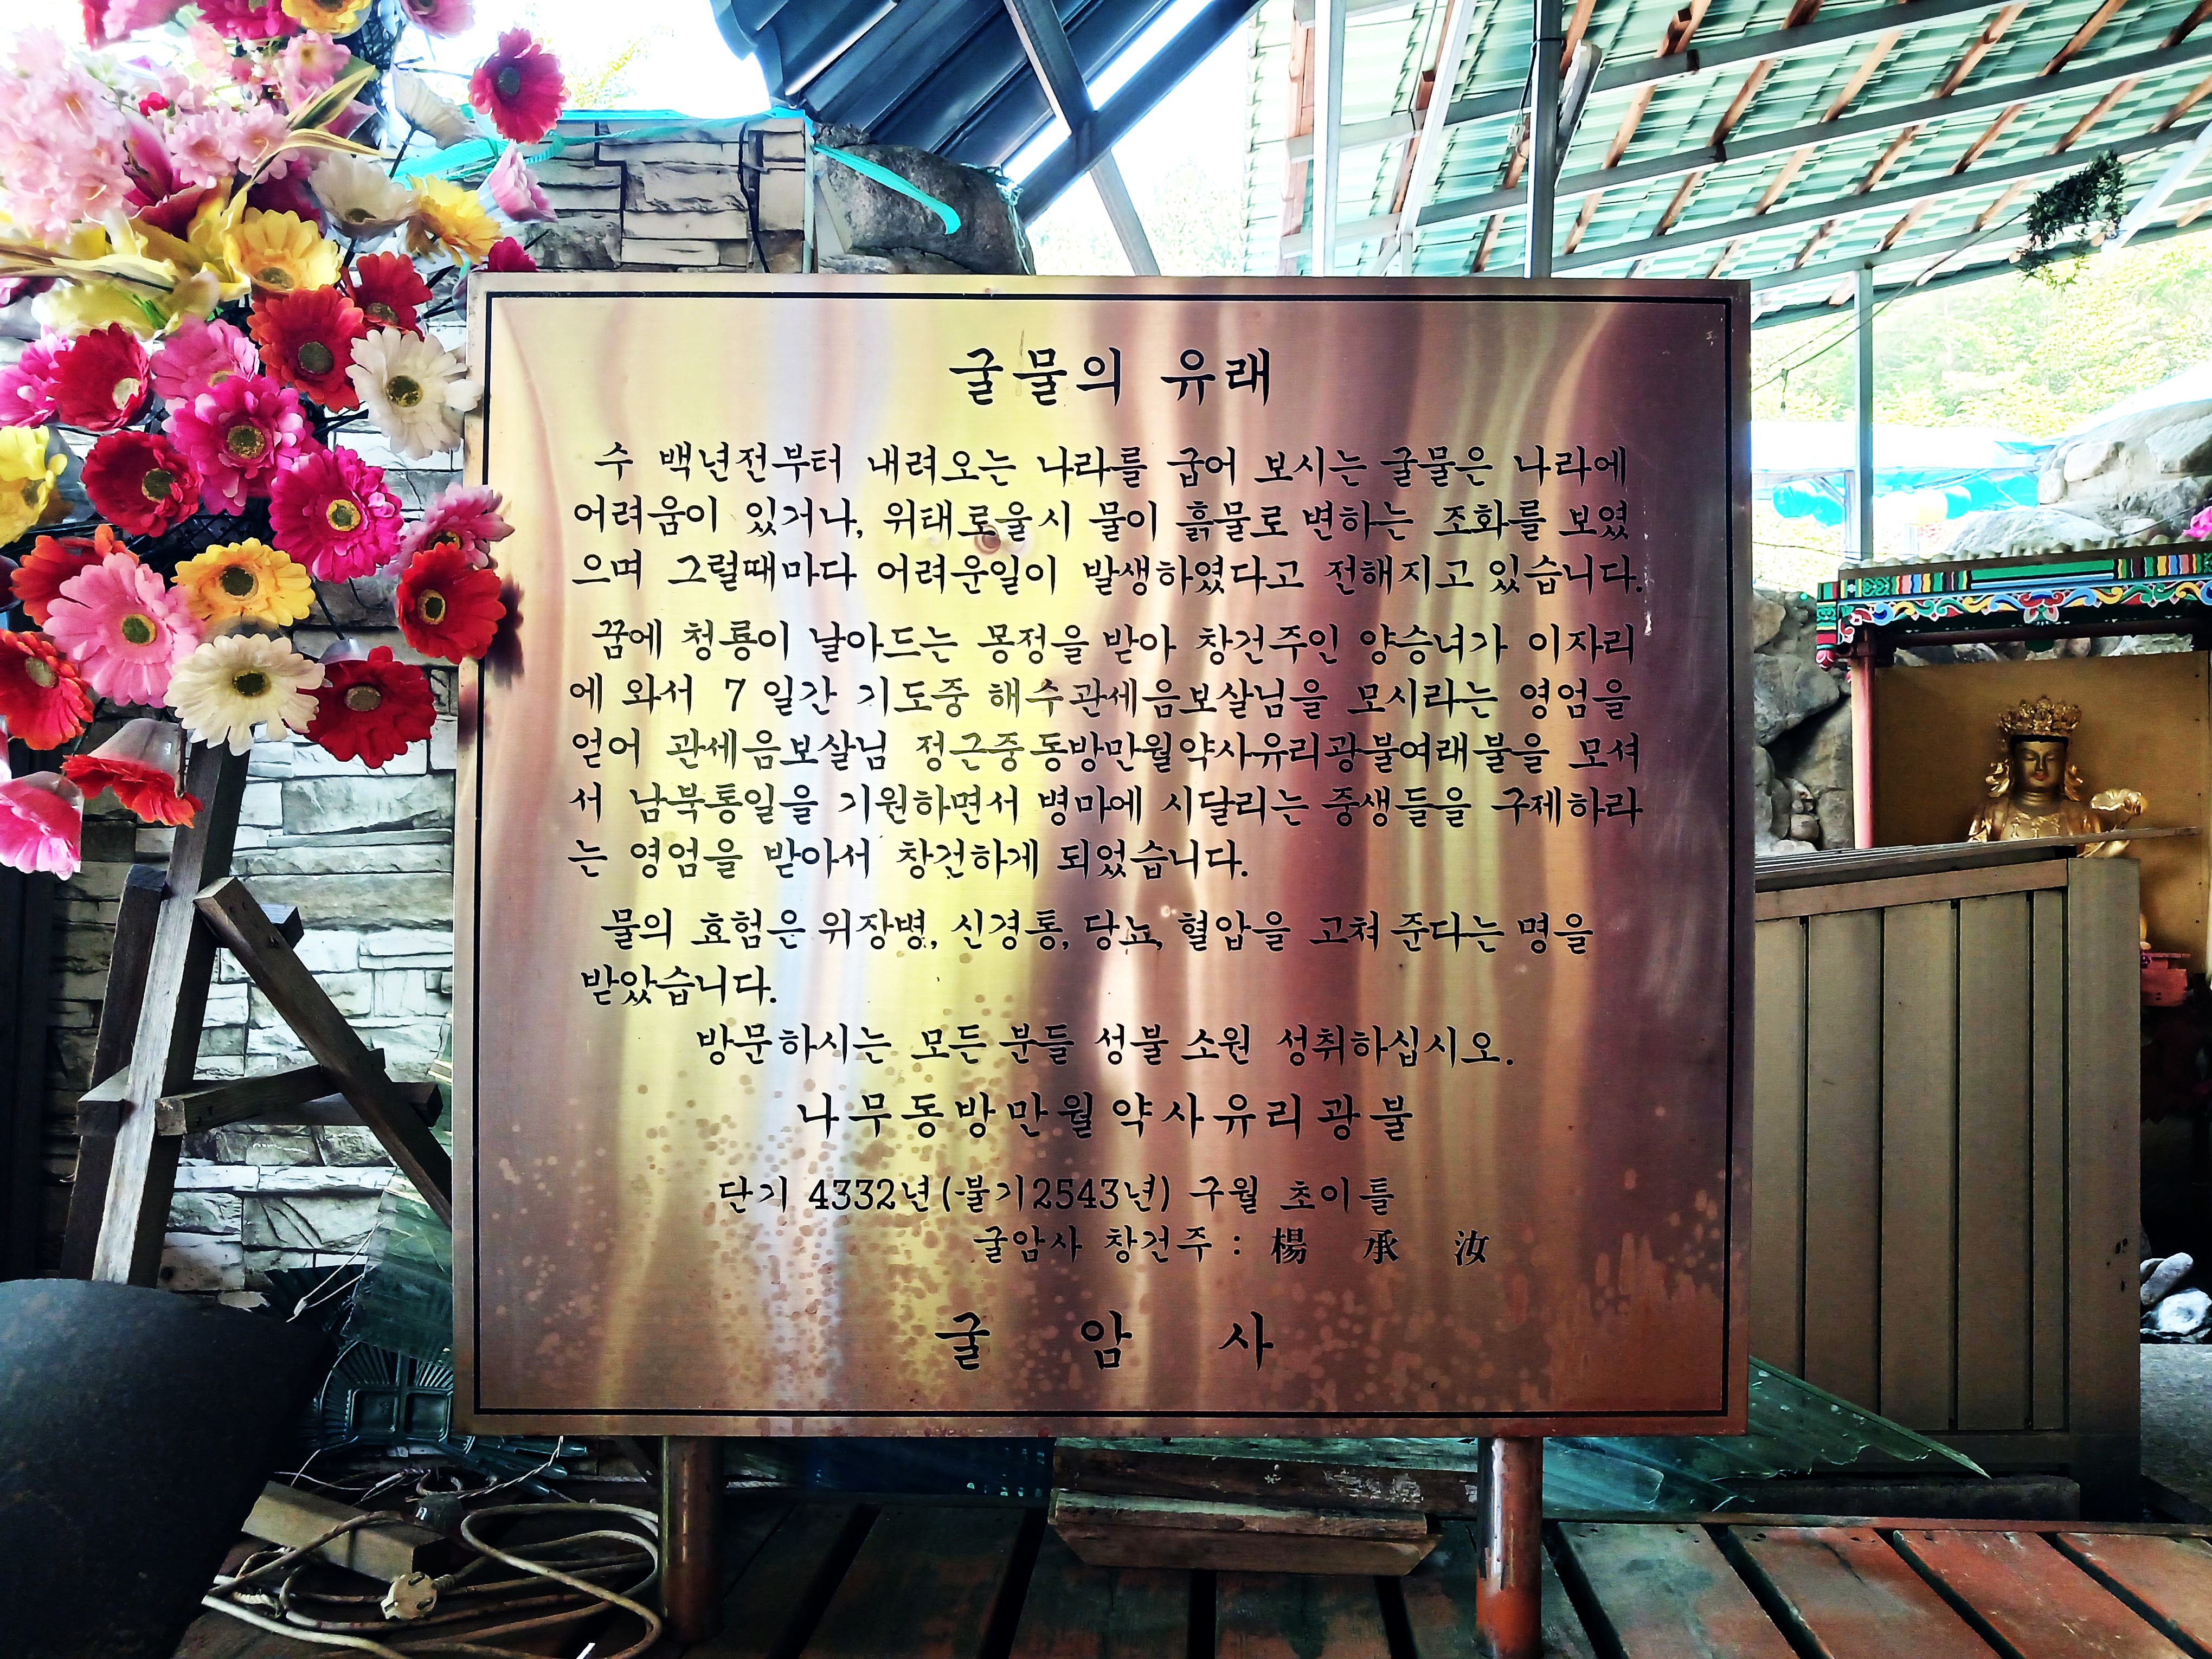 굴물의 유래
수 백년전부터 내려오는 나라를 굽어 보시는 굴물은 나라에
어려움이 있거나, 위태로울시 물이 흙물로 변하는 조화를 보였
으며 그럴때마다 어려운일이 발생하였다고 전해지고 있습니다.
꿈에 청룡이 날아드는 몽정을 받아 창건주인 양승녀가 이자리
에 와서 7 일간 기도중 해수관세음보살님을 모시라는 영엄을
얻어 관세음보살님 정근중동방만월약사유리광불여래불을 모셔
서 남북통일을 기원하면서 병마에 시달리는 중생들을 구제하라
는 영엄을 받아서 창건하게 되었습니다.
물의 효험은 위장병, 신경통, 당뇨, 혈압을 고쳐 준다는 명을
받았습니다.
방문하시는 모든 분들 성불 소원 성취하십시오.
나무동방만월약사유리광불
단기 4332년(불기2543년) 구월 초이틀
굴암사 창건주 : 楊 承 汝
굴 암 사